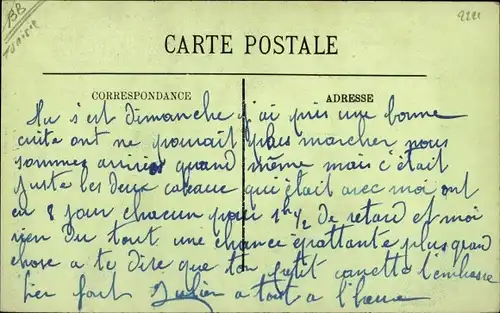 BB
TUNISIE
2221
CARTE POSTALE
CORRESPONDANCE
ADRESSE
s'est dimanche j'ai pris une bonne
cuite ont ne pouvait plus marcher nous
sommes arrivés quand même mais c'était
juste les deux cabeaux qui était avec moi ont
eu 8 jour chacun pour 1h 1/2 de retard et moi
rien du tout une chance épattante plus grand
chose a te dire que ton petit canette t'embrasse
bien fort Julien a tout a l'heure